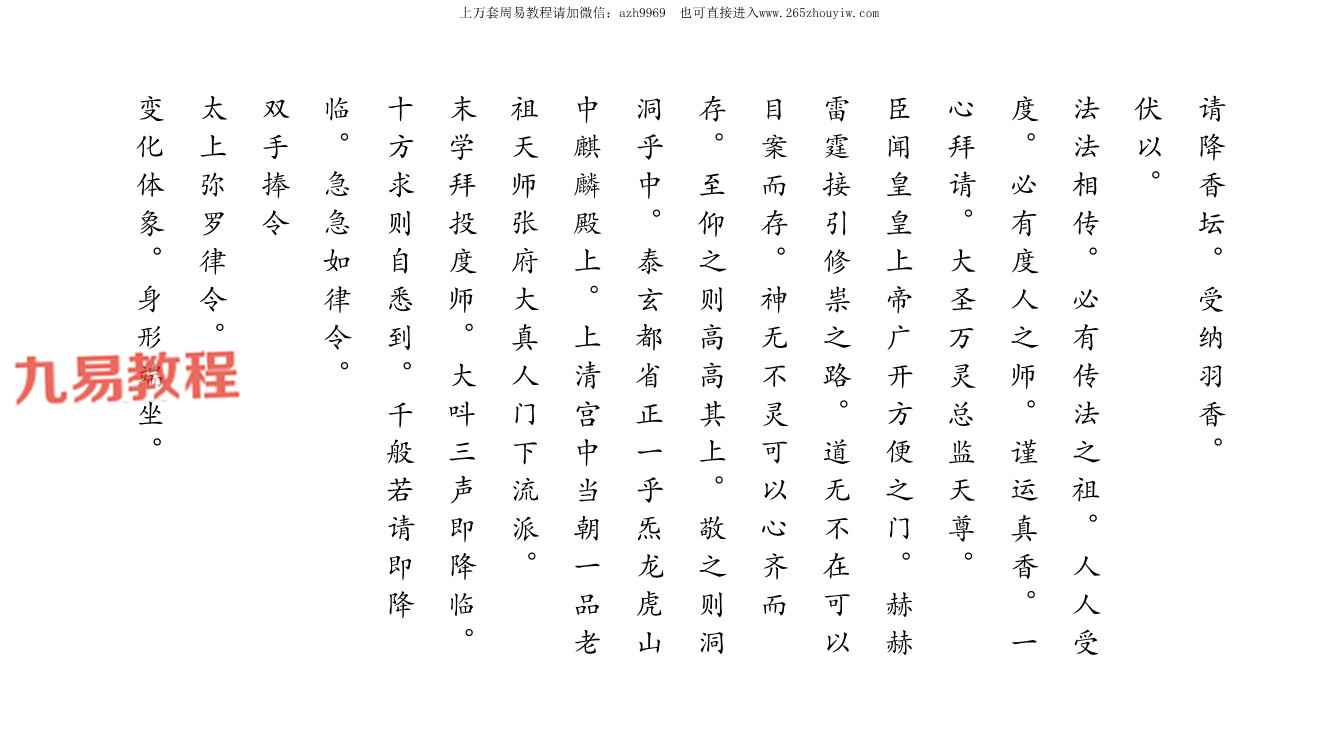 上万套周易教程请加微信：azh9969 也可直接进入www.265zhouyiw.com
请降香坛。受纳羽香。
伏以。
法法相传。必有传法之祖。人人受
度。必有度人之师。谨运真香。一
心拜请。大圣万灵总监天尊。
臣闻皇皇上帝广开方便之门。赫赫
雷霆接引修祟之路。道无不在可以
目案而存。神无不灵可以心齐而
存。至仰之则高高其上。敬之则洞
洞乎中。泰玄都省正一乎炁龙虎山
中麒麟殿上。上清宫中当朝一品老
祖天师张府大真人门下流派。
末学拜投度师。大呌三声即降临。
十方求则自悉到。千般若请即降
临。急急如律令。
双手捧令
太上弥罗律令。
变化体象。身形端坐。
九易教程